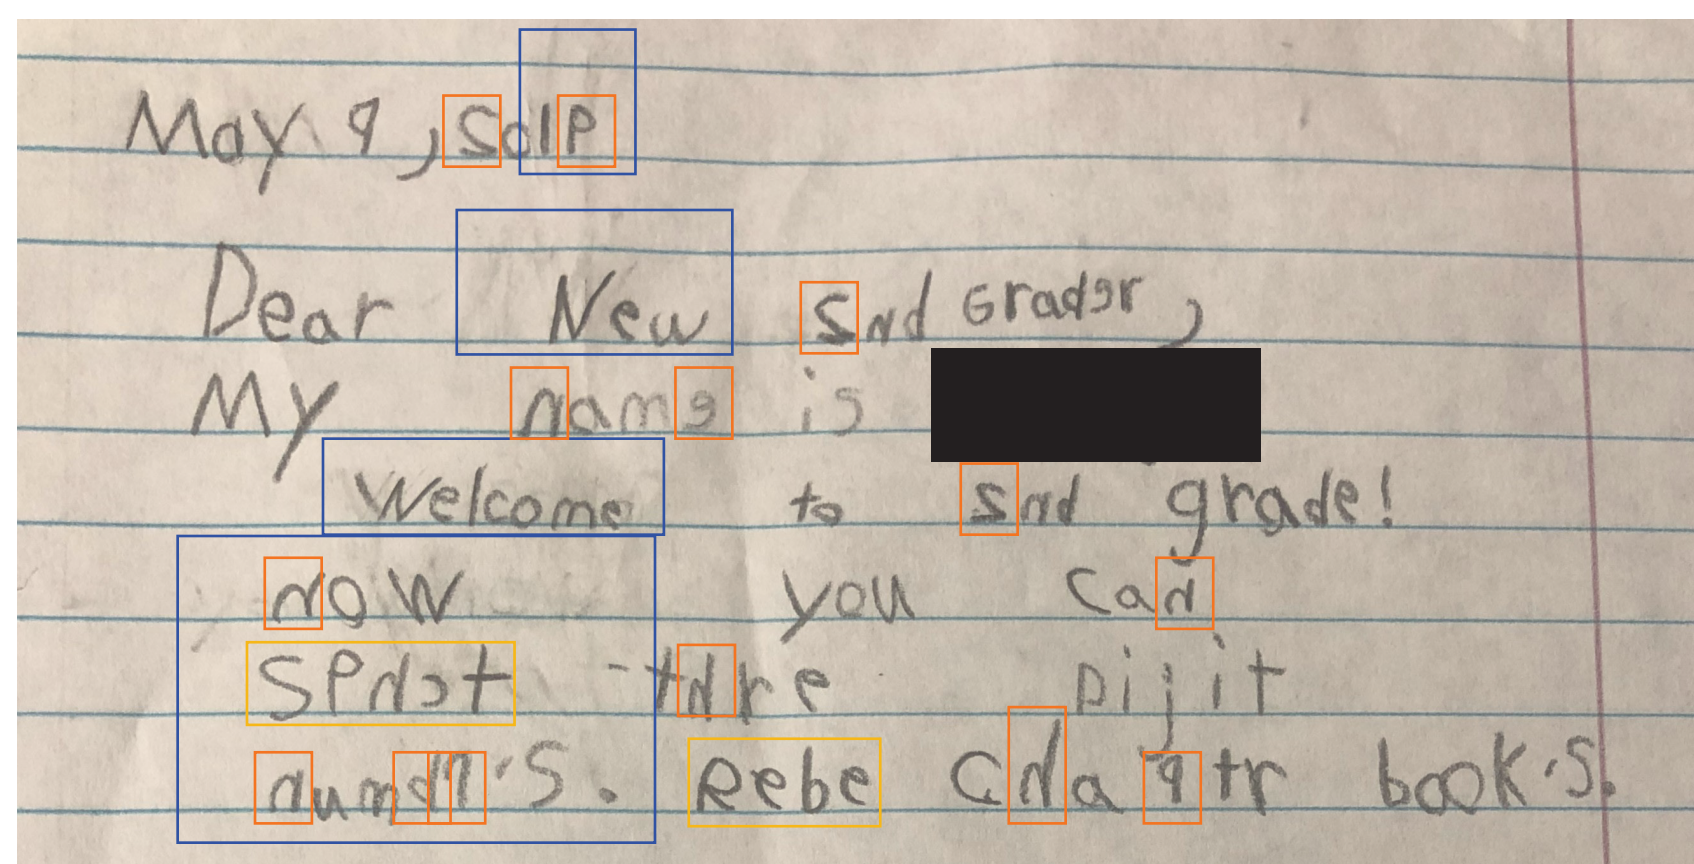 May 9, Solp
Dear New Snd Grader,
My name is
Welcome to Snd grade!
now you can
SPdot tdre Dijit
numd9.S. Rebe Cdaqtr book.S.